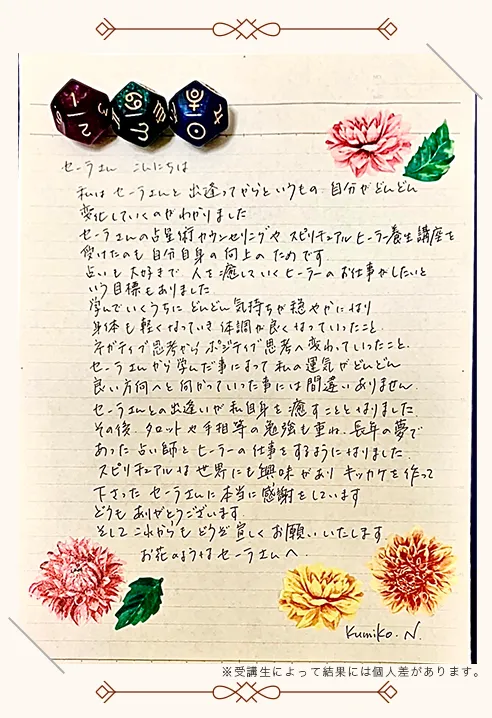 セーラさん こんにちは
私は セーラさんと 出逢ってからというもの 自分がどんどん
変化していくのが わかりました
セーラさんの占星術カウンセリングや スピリチュアルヒーラー養生講座を
受けたのも 自分自身の向上の ためです
占いも 大好きで 人を癒していくヒーラーの お仕事がしたいと
いう目標もありました
学んでいくうちに どんどん 気持ちが 穏やかになり
身体も 軽くなっていき 体調が良くなっていったこと
ネガティブ思考から ポジティブ思考へ変わっていったこと、
セーラさんから学んだ事によって 私の運気がどんどん
良い方向へと 向かっていった事には間違いありません
セーラさんとの出逢いが私自身を 癒すこととなりました
その後 タロットや手相等の勉強も重ね 長年の夢で
あった 占い師と ヒーラーの仕事をするようになりました
スピリチュアルは 世界にも興味があり キッカケを作って
下さった セーラさんに本当に感謝をしています
どうも ありがとうございます
そして これからも どうぞ 宜しく お願いいたします
お花のような セーラさんへ
Kumiko.N.
※受講生によって結果には個人差があります。